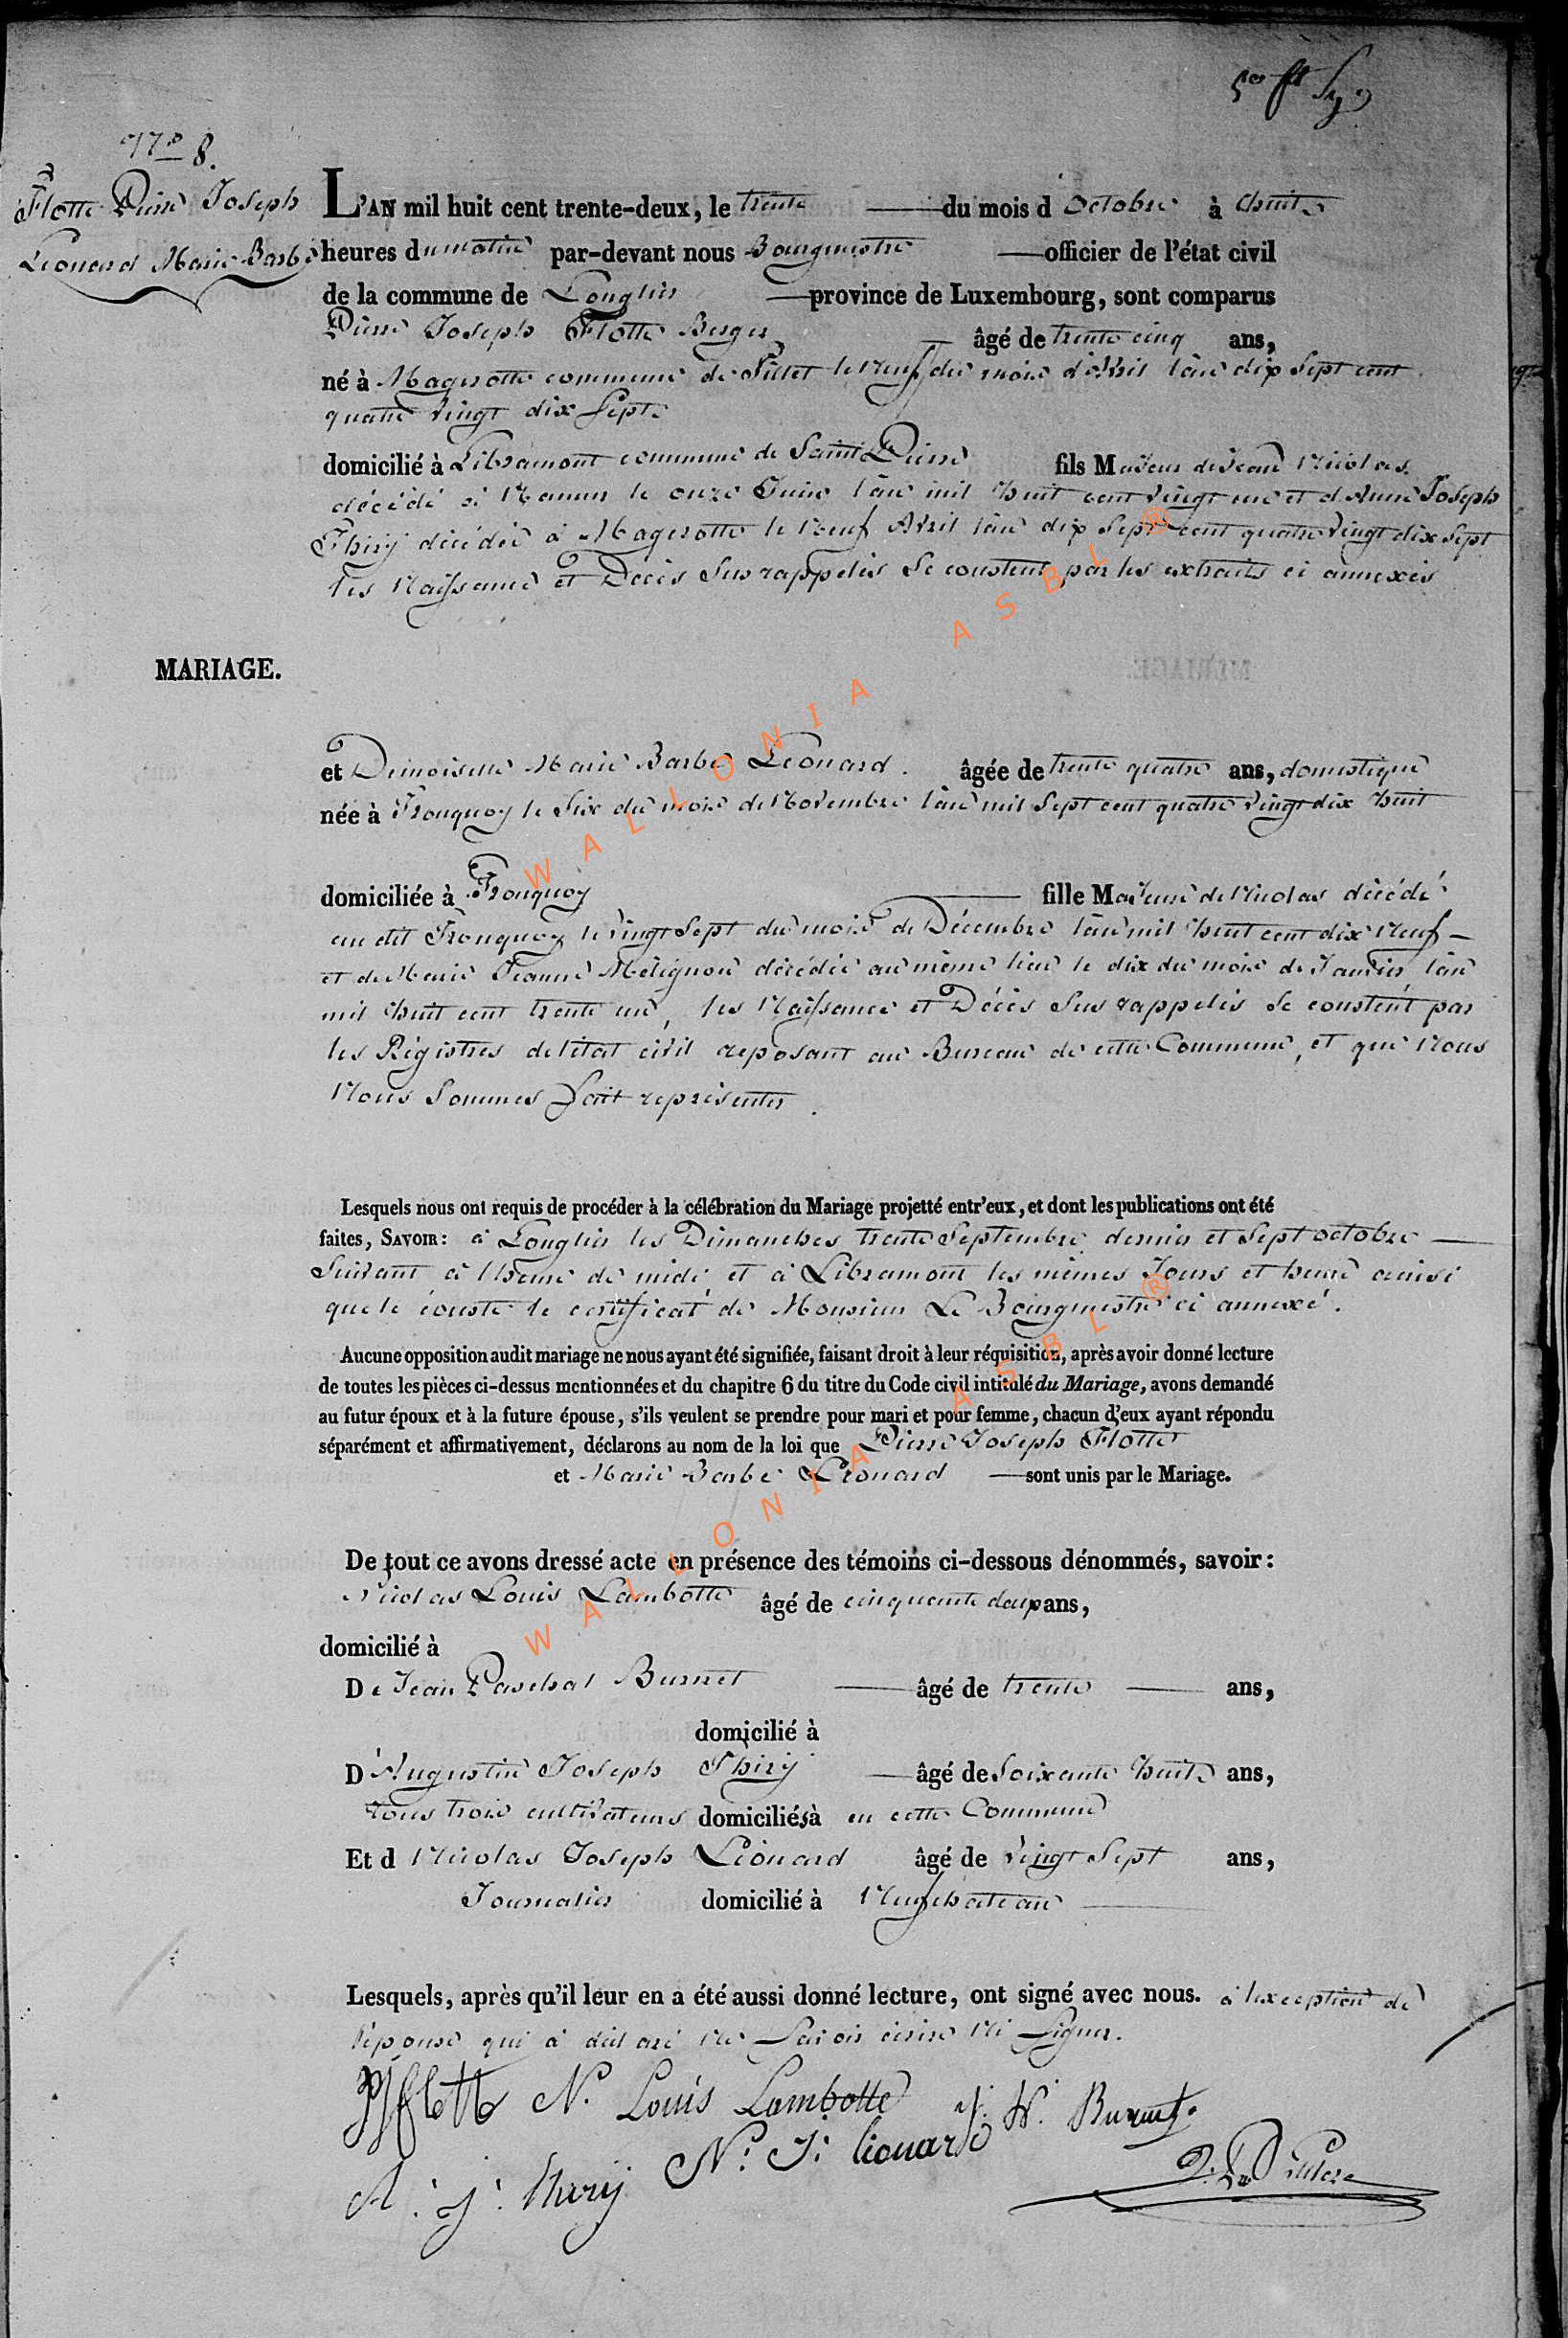 N.o 8.
Flotte Pierre Joseph
Léonard Marie Barbe
L'AN mil huit cent trente-deux, le trente du mois d'octobre à huit
heures du matin par-devant nous Bourgmestre officier de l'état civil
de la commune de Longlier province de Luxembourg, sont comparus
Pierre Joseph Flotte Berger âgé de trente cinq ans,
né à Magerotte commune de Tillet le neuf du mois d'Avril l'an dix sept cent
quatre vingt dix sept
domicilié à Libramont commune de Saint Pierre fils Majeur de Jean Nicolas
décédé à Namur le onze Juin l'an mil huit cent vingt un et d'Anne Joseph
Thiry décédée à Magerotte le neuf Avril l'an dix sept cent quatre vingt dix sept
les Naissance et Décès sus rappelés se constent par les extraits ci annexés
MARIAGE.
et Demoiselle Marie Barbe Léonard. âgée de trente quatre ans, domestique
née à Tronquoy le six du mois de Novembre l'an mil sept cent quatre vingt dix huit
domiciliée à Tronquoy fille Majeure de Nicolas décédé
au dit Tronquoy le vingt sept du mois de Décembre l'an mil huit cent dix neuf
et de Marie Jeanne Mélignon décédée au même lieu le dix du mois de Janvier l'an
mil huit cent trente un, les Naissance et Décès sus rappelés se constent par
les Régistres de l'état civil reposant au Bureau de cette Commune, et que Nous
Nous sommes fait représenter.
Lesquels nous ont requis de procéder à la célébration du Mariage projetté entr'eux, et dont les publications ont été
faites, SAVOIR: à Longlier les Dimanches trente Septembre dernier et sept octobre
suivant à l'heure de midi et à Libramont les mêmes Jours et heure ainsi
que le conste le certificat de Monsieur Le Bourgmestre ci annexé.
Aucune opposition audit mariage ne nous ayant été signifiée, faisant droit à leur réquisition, après avoir donné lecture
de toutes les pièces ci-dessus mentionnées et du chapitre 6 du titre du Code civil intitulé du Mariage, avons demandé
au futur époux et à la future épouse, s'ils veulent se prendre pour mari et pour femme, chacun d'eux ayant répondu
séparément et affirmativement, déclarons au nom de la loi que Pierre Joseph Flotte
et Marie Barbe Léonard sont unis par le Mariage.
De tout ce avons dressé acte en présence des témoins ci-dessous dénommés, savoir:
Nicolas Louis Lambotte âgé de cinquante deux ans,
domicilié à
De Jean Paschal Burnet âgé de trente ans,
domicilié à
D'Augustin Joseph Thiry âgé de soixante huit ans,
tous trois cultivateurs domiciliés à en cette Commune
Et d Nicolas Joseph Léonard âgé de vingt sept ans,
Journalier domicilié à Neufchateau
Lesquels, après qu'il leur en a été aussi donné lecture, ont signé avec nous. à l'exception de
l'épouse qui a déclaré ne savoir écrire ni signer.
PJ flotte N. Louis Lambotte J. P. Burnet.
A. J. Thiry N. J. Léonard
WALLONIA ASBL ®
WALLONIA ASBL ®